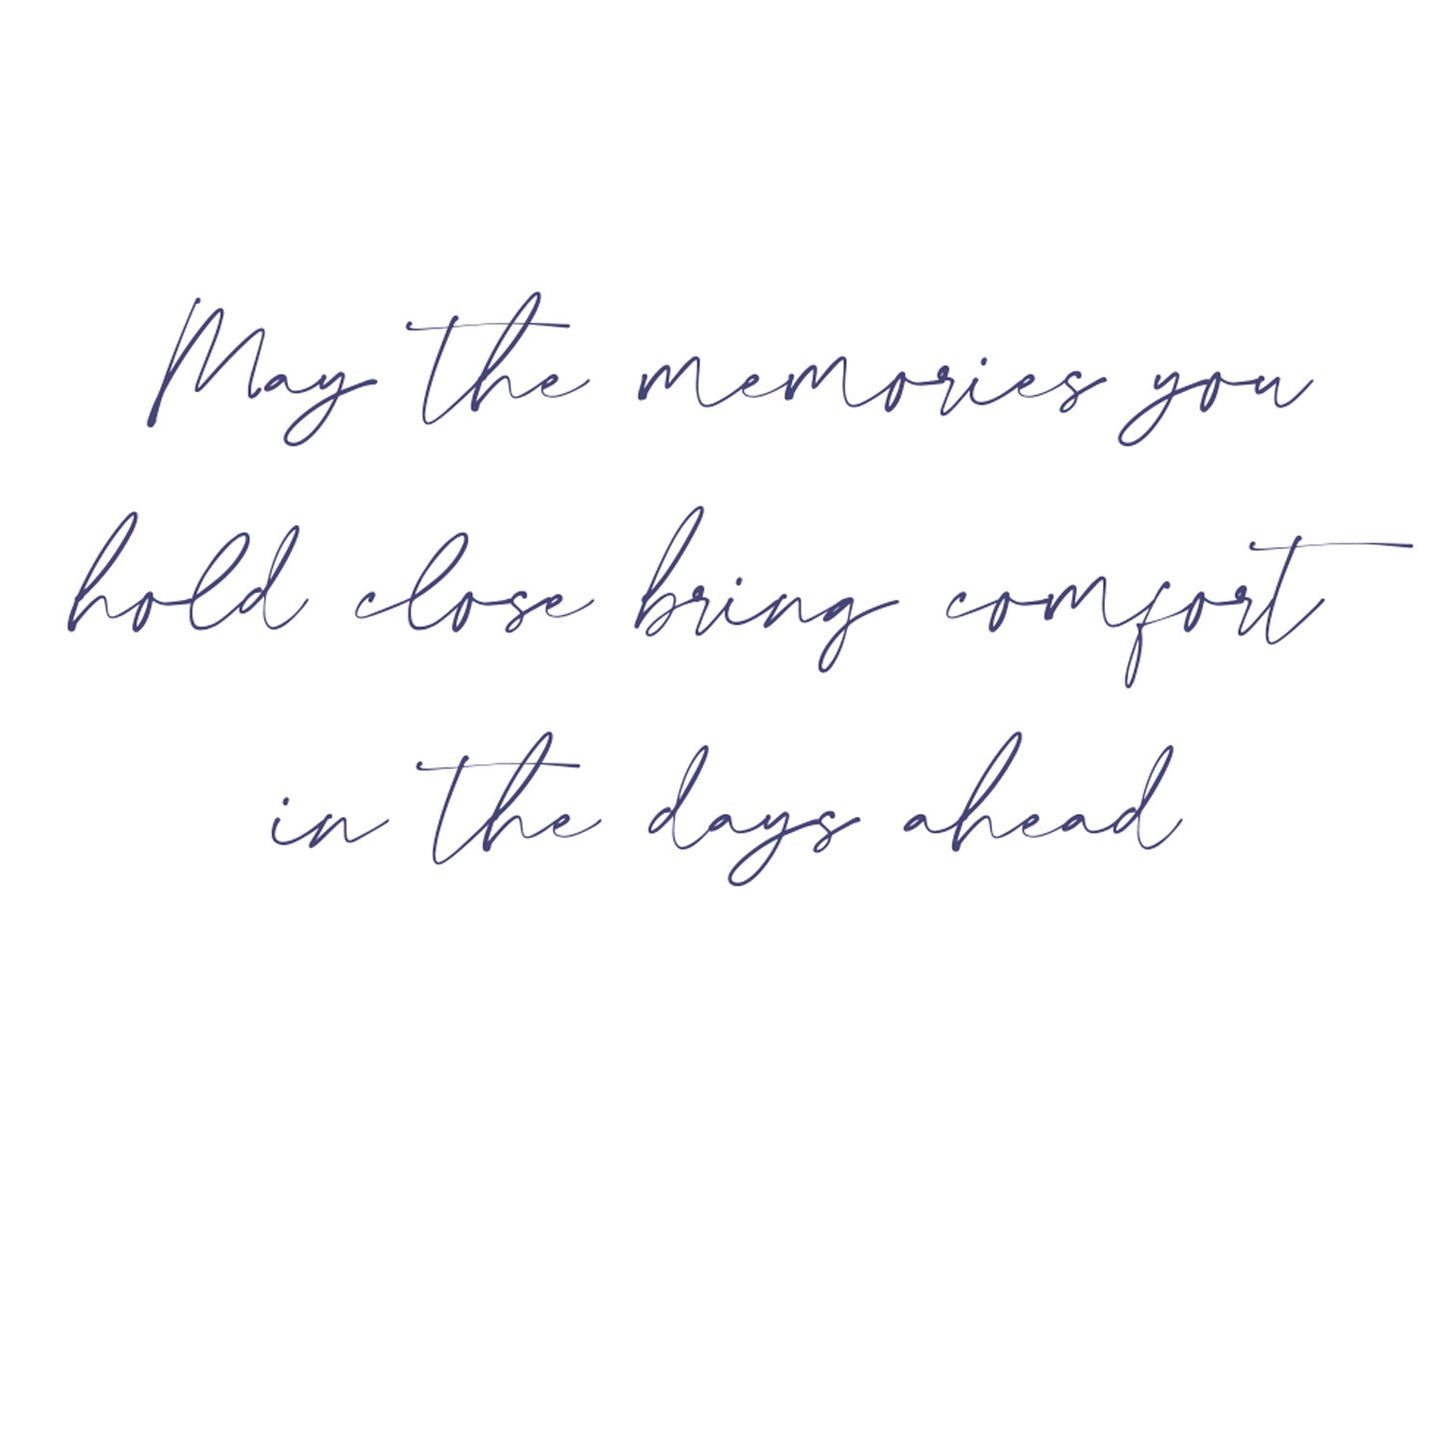 May the memories you
hold close bring comfort
in the days ahead